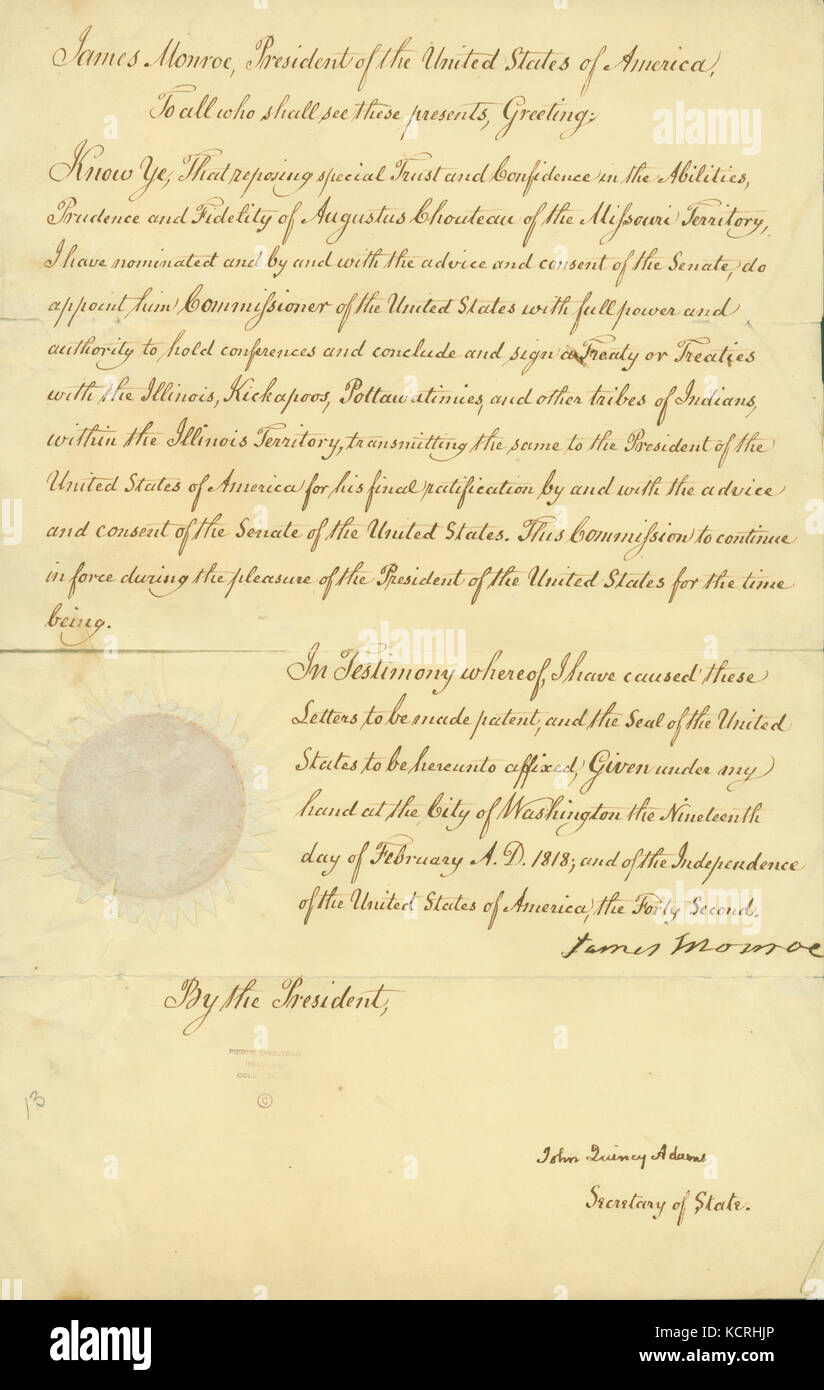 James Monroe, President of the United States of America,
To all who shall see these presents, Greeting:
Know Ye, That reposing special Trust and Confidence in the Abilities,
Prudence and Fidelity of Augustus Chouteau of the Mißouri Territory,
I have nominated and by and with the advice and consent of the Senate, do
appoint him Commißioner of the United States with full power and
authority to hold conferences and conclude and sign a Treaty or Treaties
with the Illinois, Kickapoos, Pottawatimies, and other tribes of Indians,
within the Illinois Territory, transmitting the same to the President of the
United States of America for his final ratification by and with the advice
and consent of the Senate of the United States. This Commißion to continue
in force during the pleasure of the President of the United States for the time
being.
In Testimony whereof, I have caused these
Letters to be made patent, and the Seal of the United
States to be hereunto affixed, Given under my
hand at the City of Washington the Nineteenth
day of February A. D. 1818; and of the Independence
of the United States of America, the Forty Second.
James Monroe
By the President,
PIERRE CHOUTEAU
©
13
John Quincy Adams
Secretary of State.
alamy
Image ID: KCRHJP
www.alamy.com